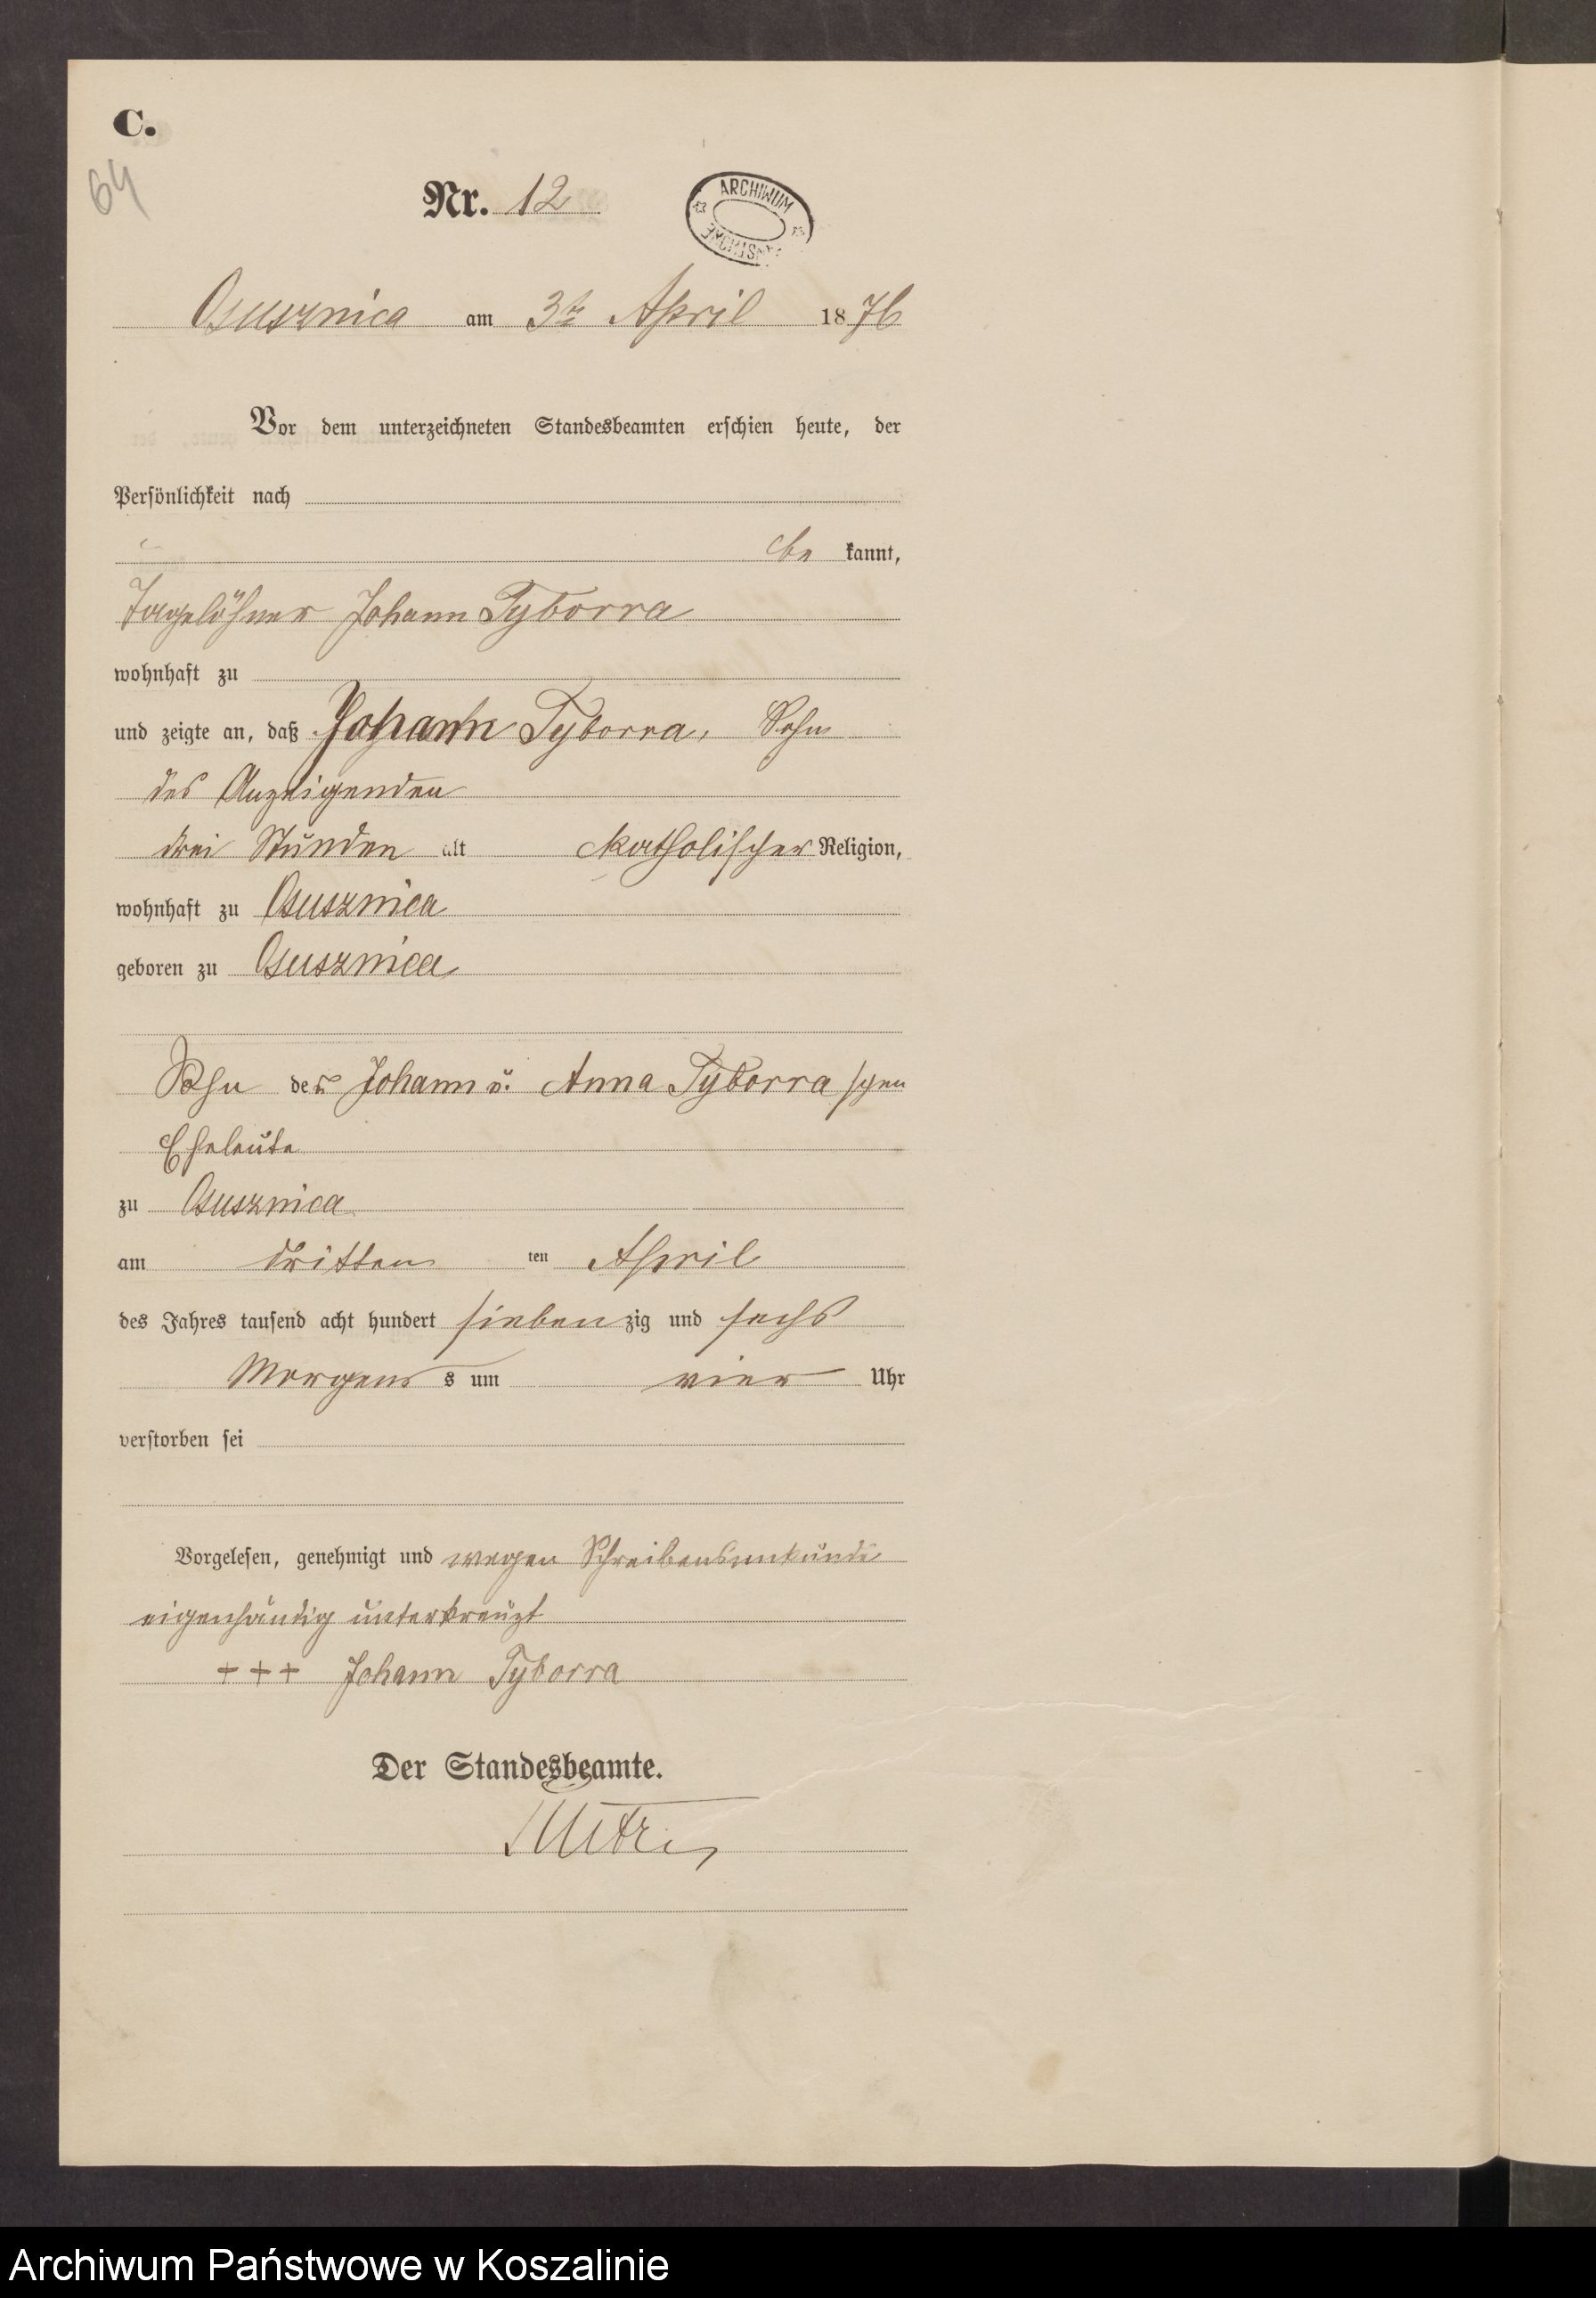 C.
64
Nr. 12
ARCHIWUM
Osusznica am 3ten April 1876
Vor dem unterzeichneten Standesbeamten erschien heute, der
Persönlichkeit nach
be kannt,
Tagelöhner Johann Tyborra
wohnhaft zu
und zeigte an, daß Johann Tyborra, Sohn
des Anzeigenden
drei Stunden alt katholischer Religion,
wohnhaft zu Osusznica
geboren zu Osusznica
Sohn der Johann u. Anna Tyborra schen
Eheleute
zu Osusznica
am dritten ten April
des Jahres tausend acht hundert siebenzig und sechs
Morgens s um vier Uhr
verstorben sei
Vorgelesen, genehmigt und wegen Schreibensunkunde
eigenhändig unterkreuzt
+ + + Johann Tyborra
Der Standesbeamte.
Archiwum Państwowe w Koszalinie